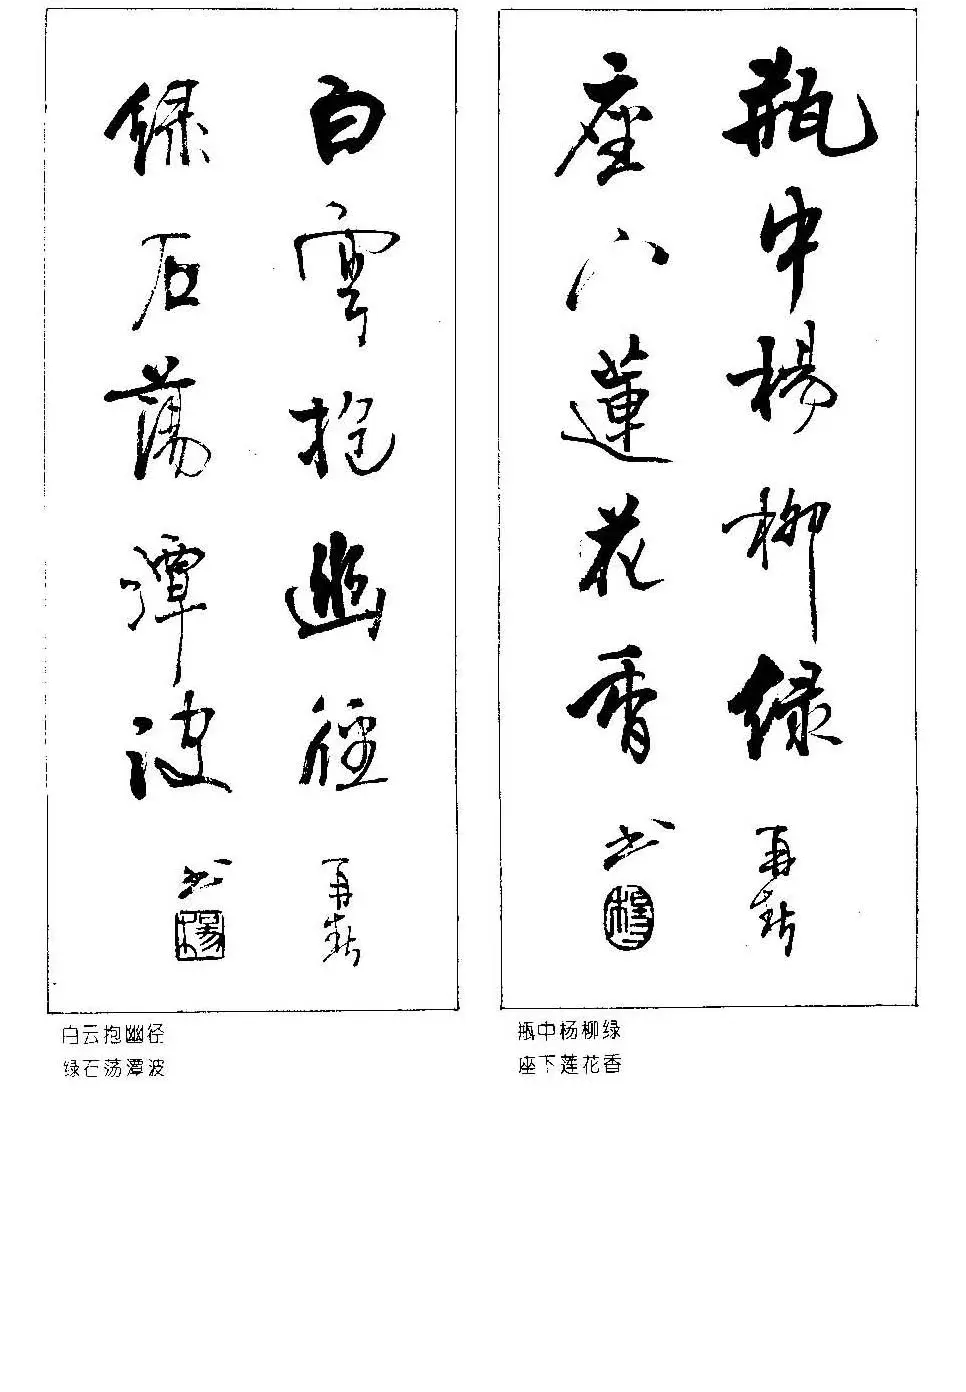 瓶中楊柳绿
再春
座下蓮花香
书
白雲抱幽径
再春
绿石蕩潭波
书
瓶中杨柳绿
座下莲花香
白云抱幽径
绿石荡潭波